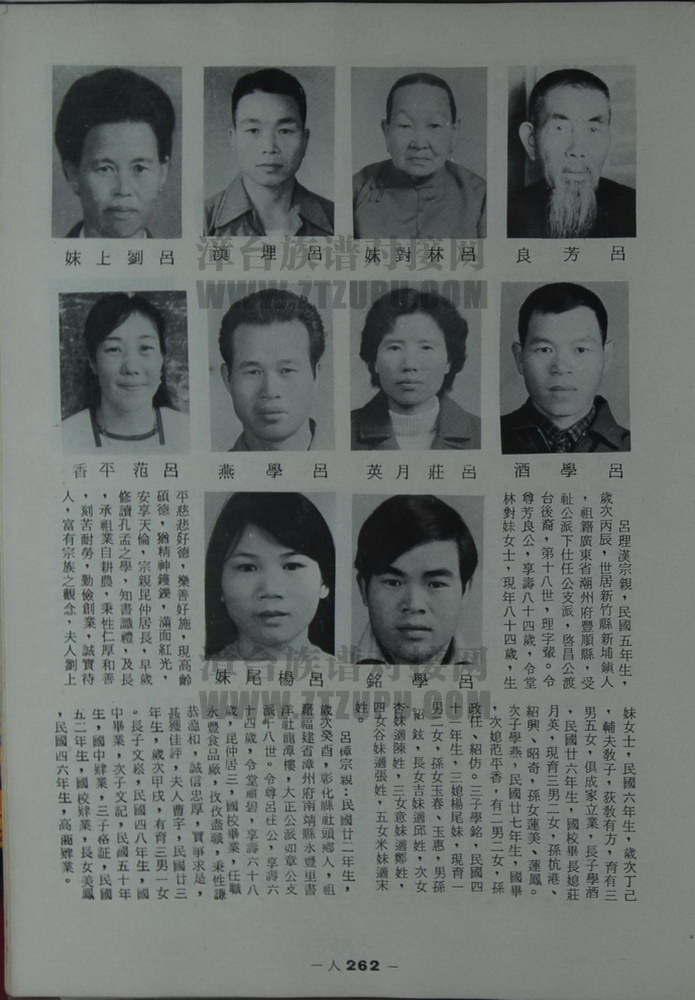 良芳呂
妹對林呂
漢理呂
妹上劉呂
酒學呂
英月莊呂
燕學呂
香平范呂
銘學呂
妹尾楊呂
呂理漢宗親，民國五年生，
歲次丙辰，世居新竹縣新埔鎮人
，祖籍廣東省潮州府豐順縣，受
祉公派下仕任公支派，啓昌公渡
台後裔，第十八世，理字輩。令
尊芳良公，享壽八十四歲，令堂
林對妹女士，現年八十四歲，生
平慈悲好德，樂善好施，現高齡
碩德，猶精神鑊鑠，滿面紅光，
安享天倫，宗親昆仲居長，早歲
修讀孔孟之學，知書識禮，及長
，承祖業自耕農，秉性仁厚和善
，刻苦耐勞，勤儉創業，誠實待
人，富有宗族之觀念，夫人劉上
妹女士，民國六年生，歲次丁己
，輔夫敎子，荻敎有方，育有三
男五女，俱成家立業，長子學酒
，民國廿六年生，國校畢長媳莊
月英，現育三男二女，孫杭港、
紹興、昭奇，孫女蓮美、蓮鳳。
次子學燕，民國廿七年生，國畢
，次媳范平香，有二男二女，孫
政任、紹仿。三子學銘，民國四
十一年生，三媳楊尾妹，現育一
男二女，孫女玉春、玉惠，男孫
紹鉉，長女吉妹適邱姓，次女
杏妹適陳姓，三女意妹適鄭姓，
四女谷妹適張姓，五女米妹適宋
姓。
呂樟宗親：民國廿二年生，
歲次癸酉，彰化縣社頭鄉人，祖
籍福建省漳州府南靖縣永豐里書
洋社龍潭樓，大正公派如章公支
派十八世。令尊呂在公，享壽六
十四歲，令堂蕭碧，享壽六十八
歲，昆仲居三，國校畢業，任職
永豐食品廠，孜孜盡職，秉性謙
恭溫和，誠信忠厚，實事求是，
甚獲佳評，夫人曹宇，民國廿三
年生，歲次甲戌，有育三男一女
。長子文崧，民國四八年生，國
中畢業，次子文記，民國五十年
生，國中肄業，三子裕証，民國
五二年生，國校肄業，長女美鳳
，民國四六年生，高商肄業。
漳台族谱对接网
WWW.ZTZUPU.COM
漳台族谱对接网
WWW.ZTZUPU.COM
－人 262－